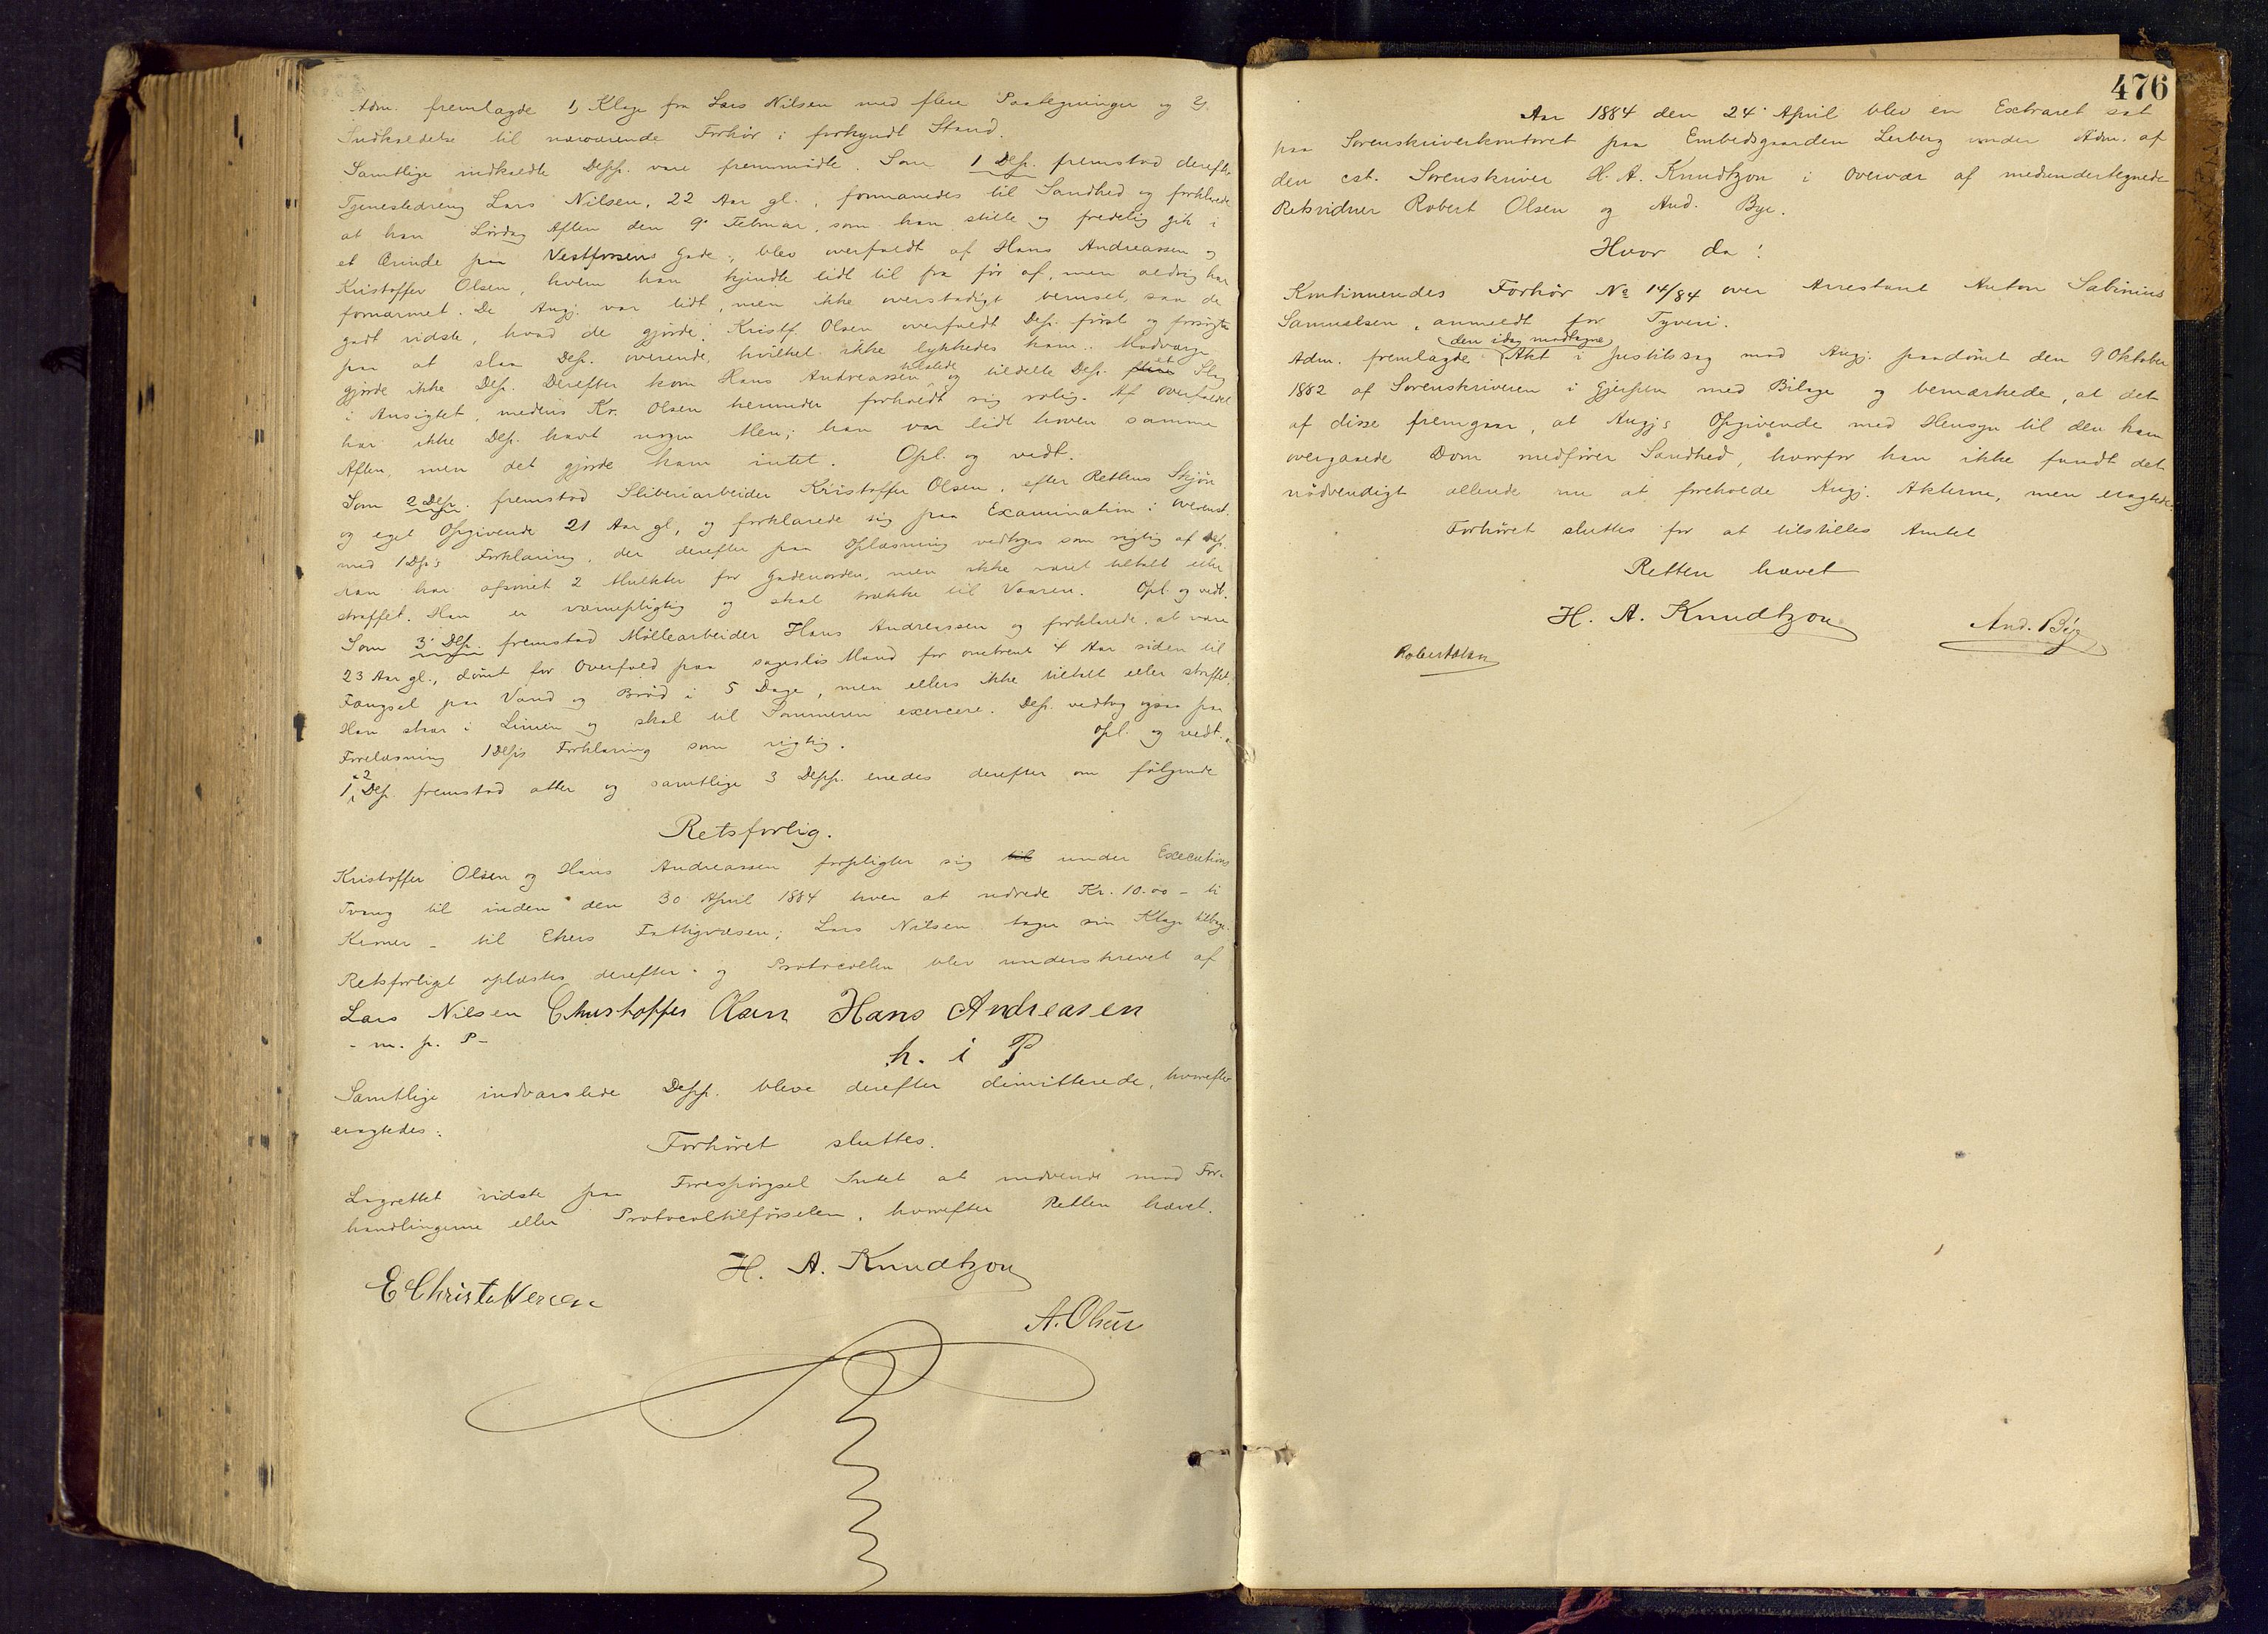 Adm. fremlagde 1, Klage fra Lars Nilsen med flere Paategninger og 2,
Indkaldelse til nærværende Forhør i forkyndt Stand.
Samtlige indkaldte Depp. vare fremmødte. Som 1 Dep. fremstod derefter
Tjenestedreng Lars Nilsen, 22 Aar gl., formanedes til Sandhed og forklarede
at han Lørdag Aften den 9de Februar, som han stille og fredelig gik i
et Ærinde paa Vestfossens Gade, blev overfaldt af Hans Andreassen og
Kristoffer Olsen, hvem han kjendte lidt til fra før af, men aldrig har
fornærmet. De Angj. var lidt, men ikke overstadigt beruset, saa de
godt vidste, hvad de gjorde. Kristf. Olsen overfaldt Dep. først og forsøgte
paa at slaa Dep. overende, hvilket ikke lykkedes ham. Modværge
gjorde ikke Dep. Derefter kom Hans Andreassen tilstede og tildelte Dep. et Slag
i Ansigtet, medens Kr. Olsen herunder forholdt sig rolig. Af Overfaldet
har ikke Dep. havt nogen Men; han var lidt hoven samme
Aften, men det gjorde ham intet. Opl. og vedt.
Som 2 Dep. fremstod Sliberiarbeider Kristoffer Olsen, efter Rettens Skjøn
og eget Opgivende 21 Aar gl., og forklarede sig paa Examination i Overenst.
med 1 Deps Forklaring, der derefter paa Oplæsning vedtoges som rigtig af Dep.
Han har afsonet 2 Mulkter for Gadeuorden, men ikke været tiltalt eller
straffet. Han er værnepligtig og skal trække til Vaaren. Opl. og vedt.
Som 3' Dep. fremstod Møllearbeider Hans Andreassen og forklarede at være
23 Aar gl., dømt for Overfald paa sagesløs Mand for omtrent 4 Aar siden til
Fængsel paa Vand og Brød i 5 Dage, men ellers ikke tiltalt eller straffet.
Han staar i Linien og skal til Sommeren exercere. Dep. vedtog ogsaa paa
Forelæsning 1 Deps Forklaring som rigtig. Opl. og vedt.
1 & 2 Dep. fremstod atter og samtlige 3 Depp. enedes derefter om følgende
Retsforlig.
Kristoffer Olsen og Hans Andreassen forpligter sig til under Executions
Tvang til inden den 30 April 1884 hver at udrede Kr. 10.00 – ti
Kroner – til Ekers Fattigvæsen; Lars Nilsen tager sin Klage tilbage.
Retsforliget oplæstes derefter og Protocollen blev underskrevet af
Lars Nilsen Christoffer Olsen Hans Andreasen
- m. p. P -
h. i P
Samtlige indvarslede Depp. bleve derefter dimitterede, hvorefter
eragtedes:
Forhøret sluttes.
Lagrettet vidste paa Forespørgsel Intet at indvende mod For-
handlingerne eller Protocoltilførselen, hvorefter Retten hævet.
H. A. Knudtzon
E Christoffersen
A. Olsen
476
Aar 1884 den 24' April blev en Extraret sat
paa Sorenskriverkontoret paa Embedsgaarden Lerberg under Adm. af
den cst. Sorenskriver H. A. Knudtzon i Overvær af medundertegnede
Retsvidner Robert Olsen og And. Bye.
Hvor da:
Kontinueredes Forhør No 14/84 over Arrestant Anton Sabinius
Samuelsen, anmeldt for Tyveri.
den idag modtagne
Adm. fremlagde Akt i Justitssag mod Angj. paadømt den 9 Oktober
1882 af Sorenskriveren i Gjerpen med Bilage og bemærkede, at det
af disse fremgaar, at Angj.s Opgivende med Hensyn til den ham
overgaaede Dom medfører Sandhed, hvorfor han ikke fandt det
nødvendigt allerede nu at foreholde Angj. Akterne, men eragtede:
Forhøret sluttes for at tilstilles Amtet
Retten hævet
H. A. Knudtzon
And. Bye
Robert Olsen